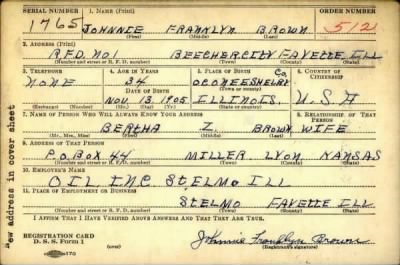 SERIAL NUMBER 1. NAME (Print) ORDER NUMBER
1765 JOHNNIE FRANKLYN BROWN 512
(First) (Middle) (Last)
2. ADDRESS (Print)
R.F.D. NO 1 BEECHERCITY FAYETTE ILL
(Number and street or R. F. D. number) (Town) (County) (State)
3. TELEPHONE 4. AGE IN YEARS 5. PLACE OF BIRTH 6. COUNTRY OF CITIZENSHIP
NONE 34 OCONEE SHELBY Co
DATE OF BIRTH (Town or county)
NOV 13 1905 ILLINOIS, U.S.A
(Exchange) (Number) (Mo.) (Day) (Yr.) (State or country)
7. NAME OF PERSON WHO WILL ALWAYS KNOW YOUR ADDRESS 8. RELATIONSHIP OF THAT PERSON
BERTHA Z. BROWN WIFE
(Mr., Mrs., Miss) (First) (Middle) (Last)
9. ADDRESS OF THAT PERSON
P.O. BOX 44 MILLER, LYON, KANSAS
(Number and street or R. F. D. number) (Town) (County) (State)
10. EMPLOYER'S NAME
OIL INC. ST. ELMO ILL
11. PLACE OF EMPLOYMENT OR BUSINESS
ST ELMO FAYETTE ILL
(Number and street or R. F. D. number) (Town) (County) (State)
I AFFIRM THAT I HAVE VERIFIED ABOVE ANSWERS AND THAT THEY ARE TRUE.
REGISTRATION CARD
D. S. S. Form 1 Johnnie Franklyn Brown
(Registrant's signature)
New address in cover sheet